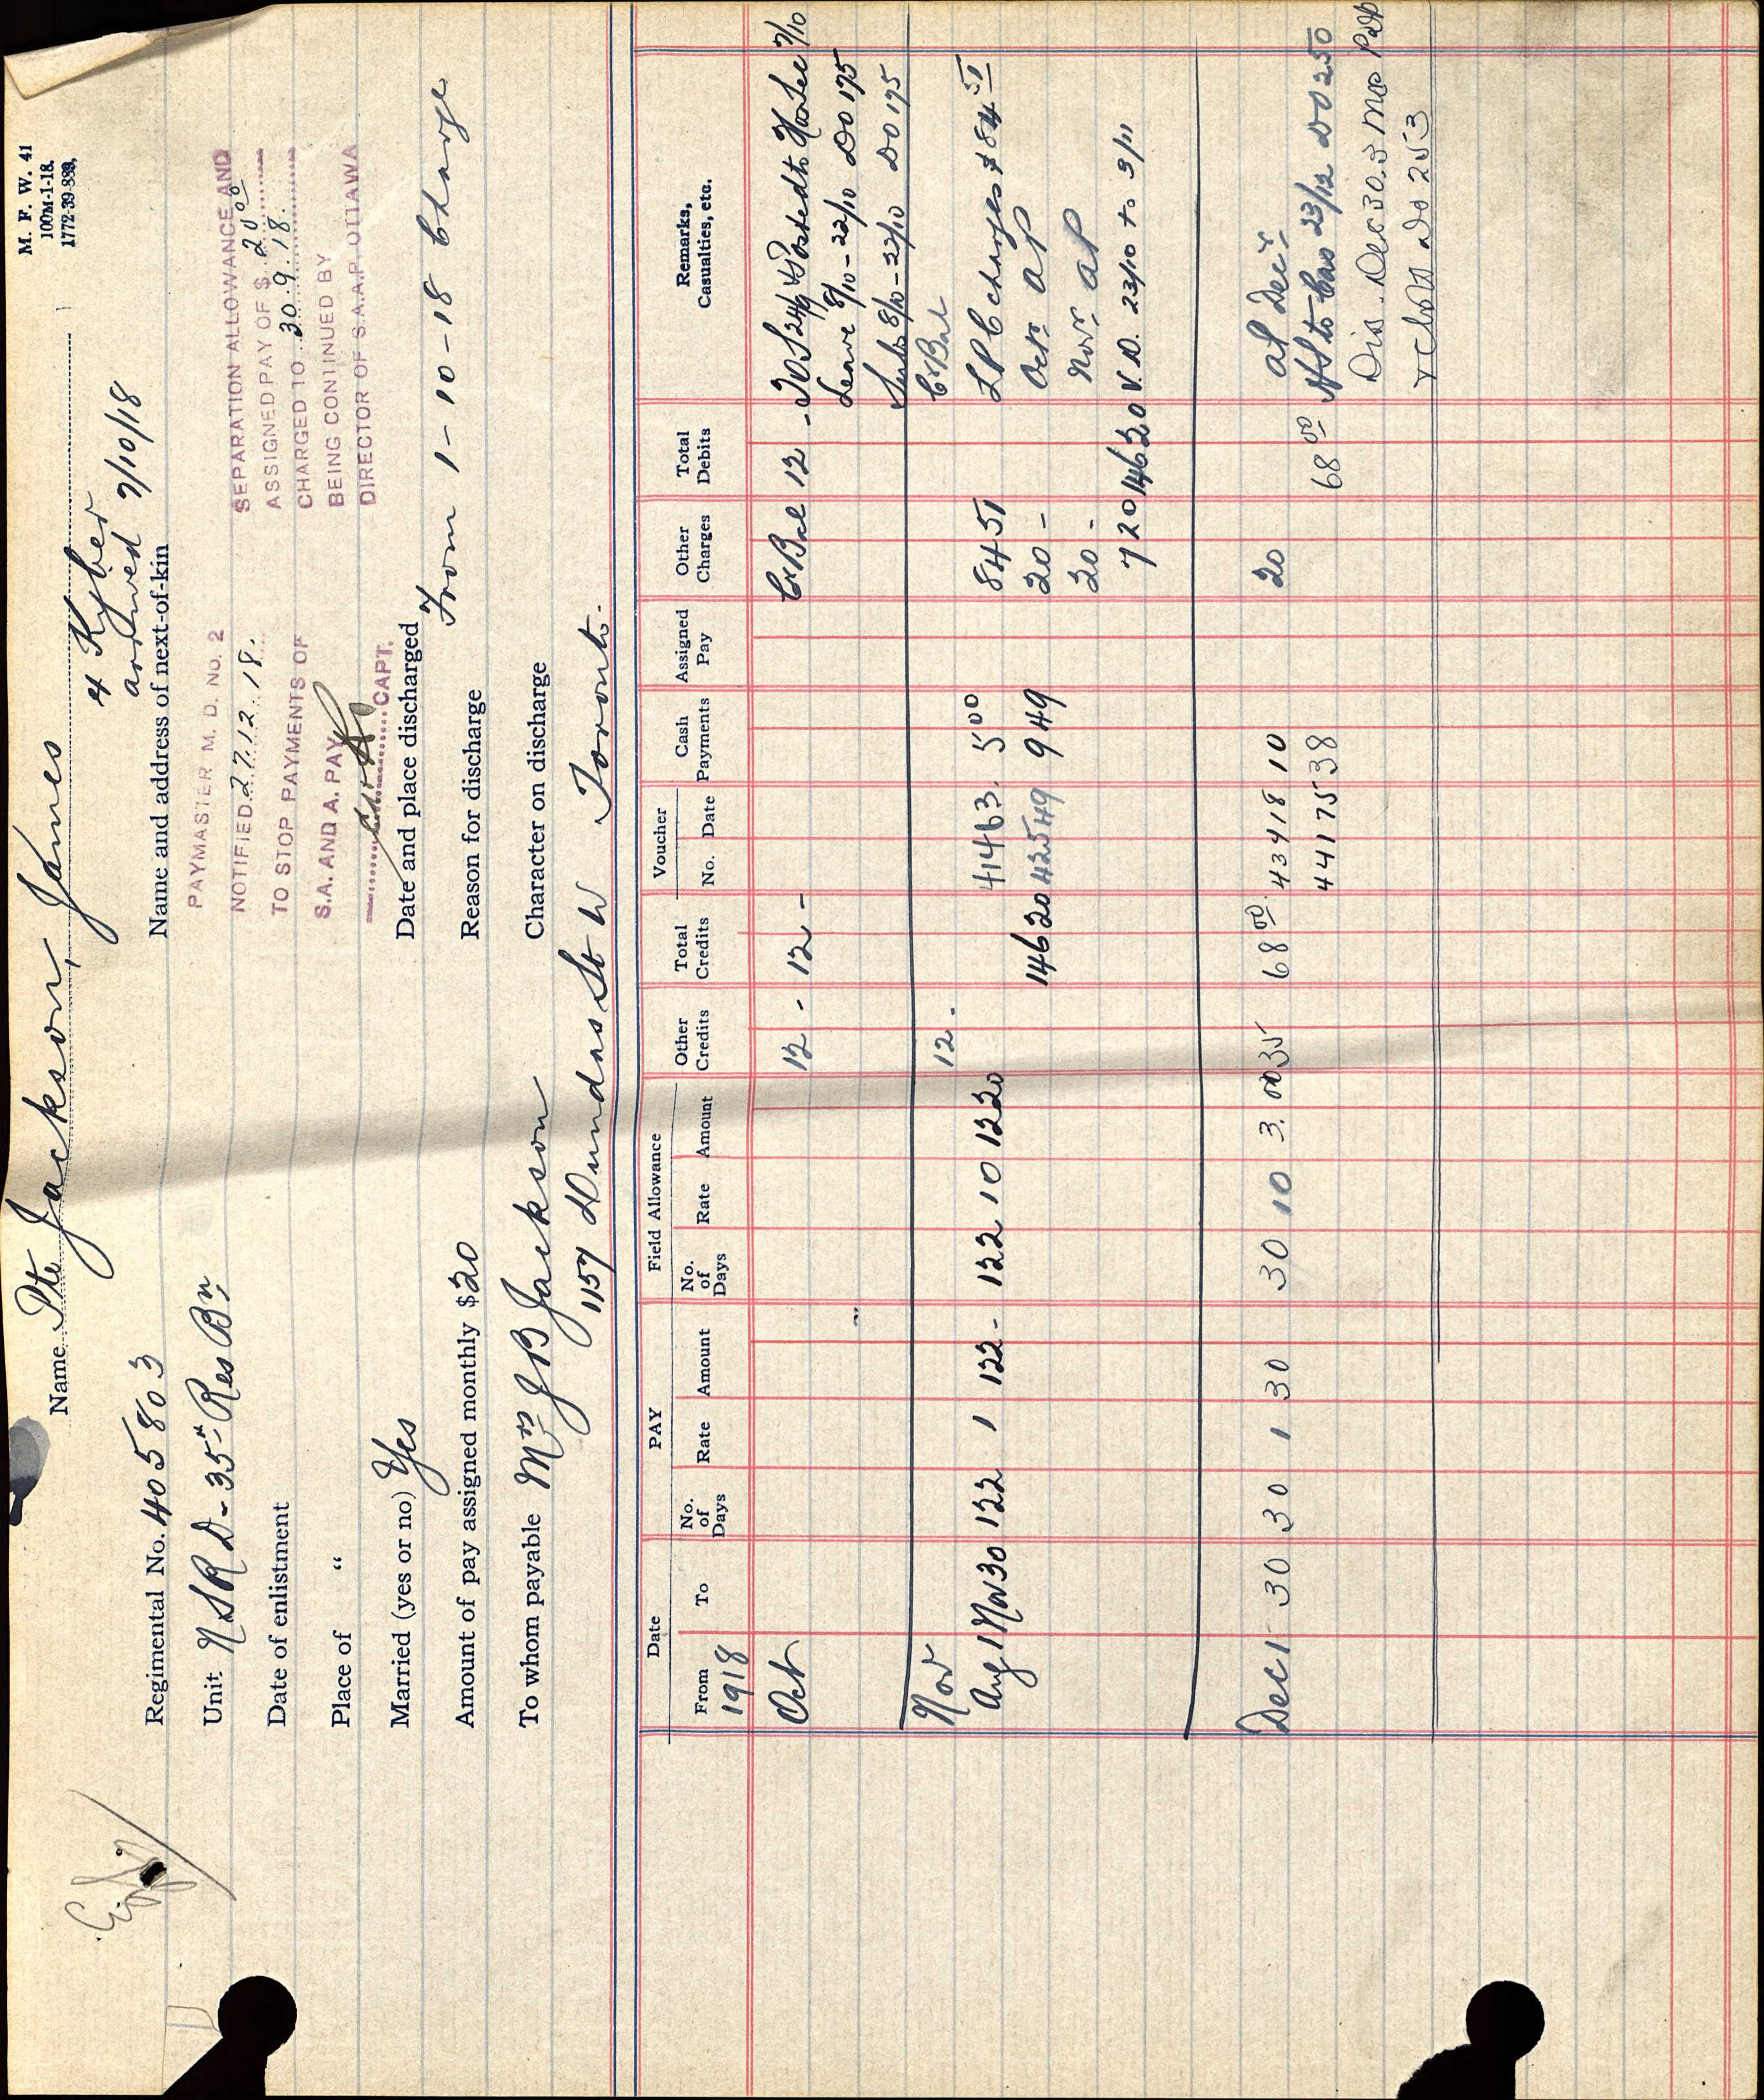 M. F. W. 41
100M-1-18.
1772-39-889.
Name Pte Jackson, James
Regimental No. 405803
Unit NSRD - 35th Res Bn
Date of enlistment
Place of "
Married (yes or no) Yes
Amount of pay assigned monthly $20
To whom payable Mrs J B Jackson
1157 Dundas St W Toronto.
4 Kyber
arrived 7/10/18
Name and address of next-of-kin
PAYMASTER M. D. No. 2
NOTIFIED 27.12.18.
TO STOP PAYMENTS OF
S.A. AND A. PAY
CAPT.
SEPARATION ALLOWANCE AND
ASSIGNED PAY OF $ 20 00
CHARGED TO 30.9.18.
BEING CONTINUED BY
DIRECTOR OF S.A.A.P. OTTAWA
Date and place discharged
From 1-10-18 Charge
Reason for discharge
Character on discharge
Date PAY Field Allowance Other Credits Total Credits Voucher Cash Payments Assigned Pay Other Charges Total Debits Remarks, Casualties, etc.
From To No. of Days Rate Amount No. of Days Rate Amount No. Date
1918
Oct 12 - 12 - Cr Bal 12 - TOS 24/4 Posted to 7/10
Leave 8/10-22/10 DO 175
Subs 8/10-22/10 DO 175
Nov 12 - Cr Bal
Aug 1 Nov 30 122 1 122 - 122 10 1220 41463 5 00 84 51 LPC charges $84 51
146 20 42549 9 49 20 - Octr AP
20 - Novr AP
7 20 146 20 V.D. 23/10 to 3/11
Dec 1 30 30 1 30 30 10 3.00 35 68 00 43418 10 20 AP Decr
44175 38 68 00 to Cas 23/12 DO 250
Dis. Dec 30.3
DO 253